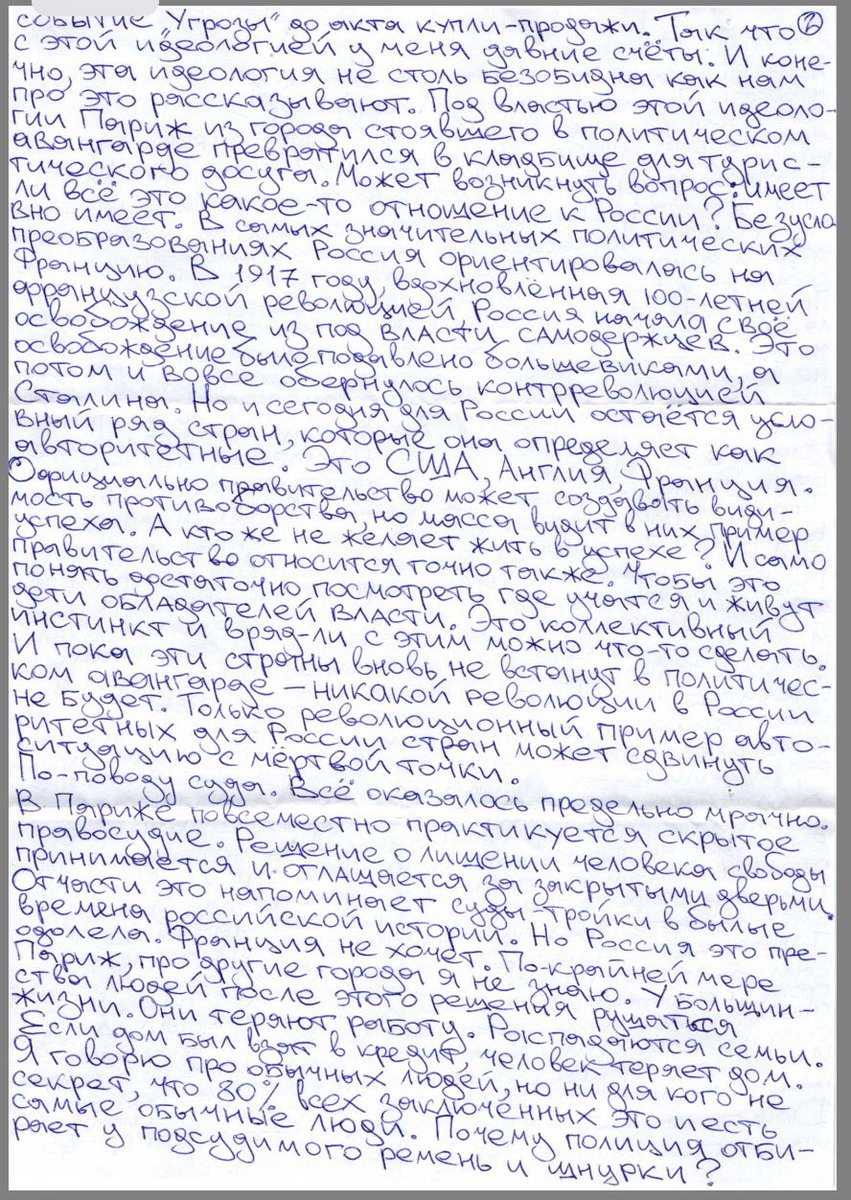 событие "Угрозы" до акта купли-продажи. Так что ②
с этой идеологией у меня давние счёты. И коне-
чно, эта идеология не столь безобидна как нам
про это рассказывают. Под властью этой идеоло-
гии Париж из города стоявшего в политическом
авангарде превратился в кладбище для турис-
тического досуга. Может возникнуть вопрос: имеет
ли всё это какое-то отношение к России? Безусло
вно имеет. В самых значительных политических
преобразованиях Россия ориентировалась на
Францию. В 1917 году, вдохновлённая 100-летней
французской революцией Россия начала своё
освобождение из под власти самодержцев. Это
освобождение было подавлено большевиками, а
потом и вовсе обернулось контрреволюцией
Сталина. Но и сегодня для России остаётся усло-
вный ряд стран, которые она определяет как
авторитетные. Это США, Англия, Франция.
Официально правительство может создавать види-
мость противоборства, но масса видит в них пример
успеха. А кто же не желает жить в успехе? И само
правительство относится точно также. Чтобы это
понять достаточно посмотреть где учатся и живут
дети обладателей власти. Это коллективный
инстинкт и вряд-ли с этим можно что-то сделать.
И пока эти страны вновь не встанут в политичес-
ком авангарде – никакой революции в России
не будет. Только революционный пример авто-
ритетных для России стран может сдвинуть
ситуацию с мёртвой точки.
По-поводу суда. Всё оказалось предельно мрачно.
В Париже повсеместно практикуется скрытое
правосудие. Решение о лишении человека свободы
принимается и оглашается за закрытыми дверьми.
Отчасти это напоминает суды-тройки в былые
времена российской истории. Но Россия это пре-
одолела. Франция не хочет. По-крайней мере
Париж, про другие города я не знаю. У большин-
ства людей после этого решения рушаться
жизни. Они теряют работу. Распадаются семьи.
Если дом был взят в кредит, человек теряет дом.
Я говорю про обычных людей, но ни для кого не
секрет, что 80% всех заключённых это и есть
самые обычные люди. Почему полиция отби-
рает у подсудимого ремень и шнурки?